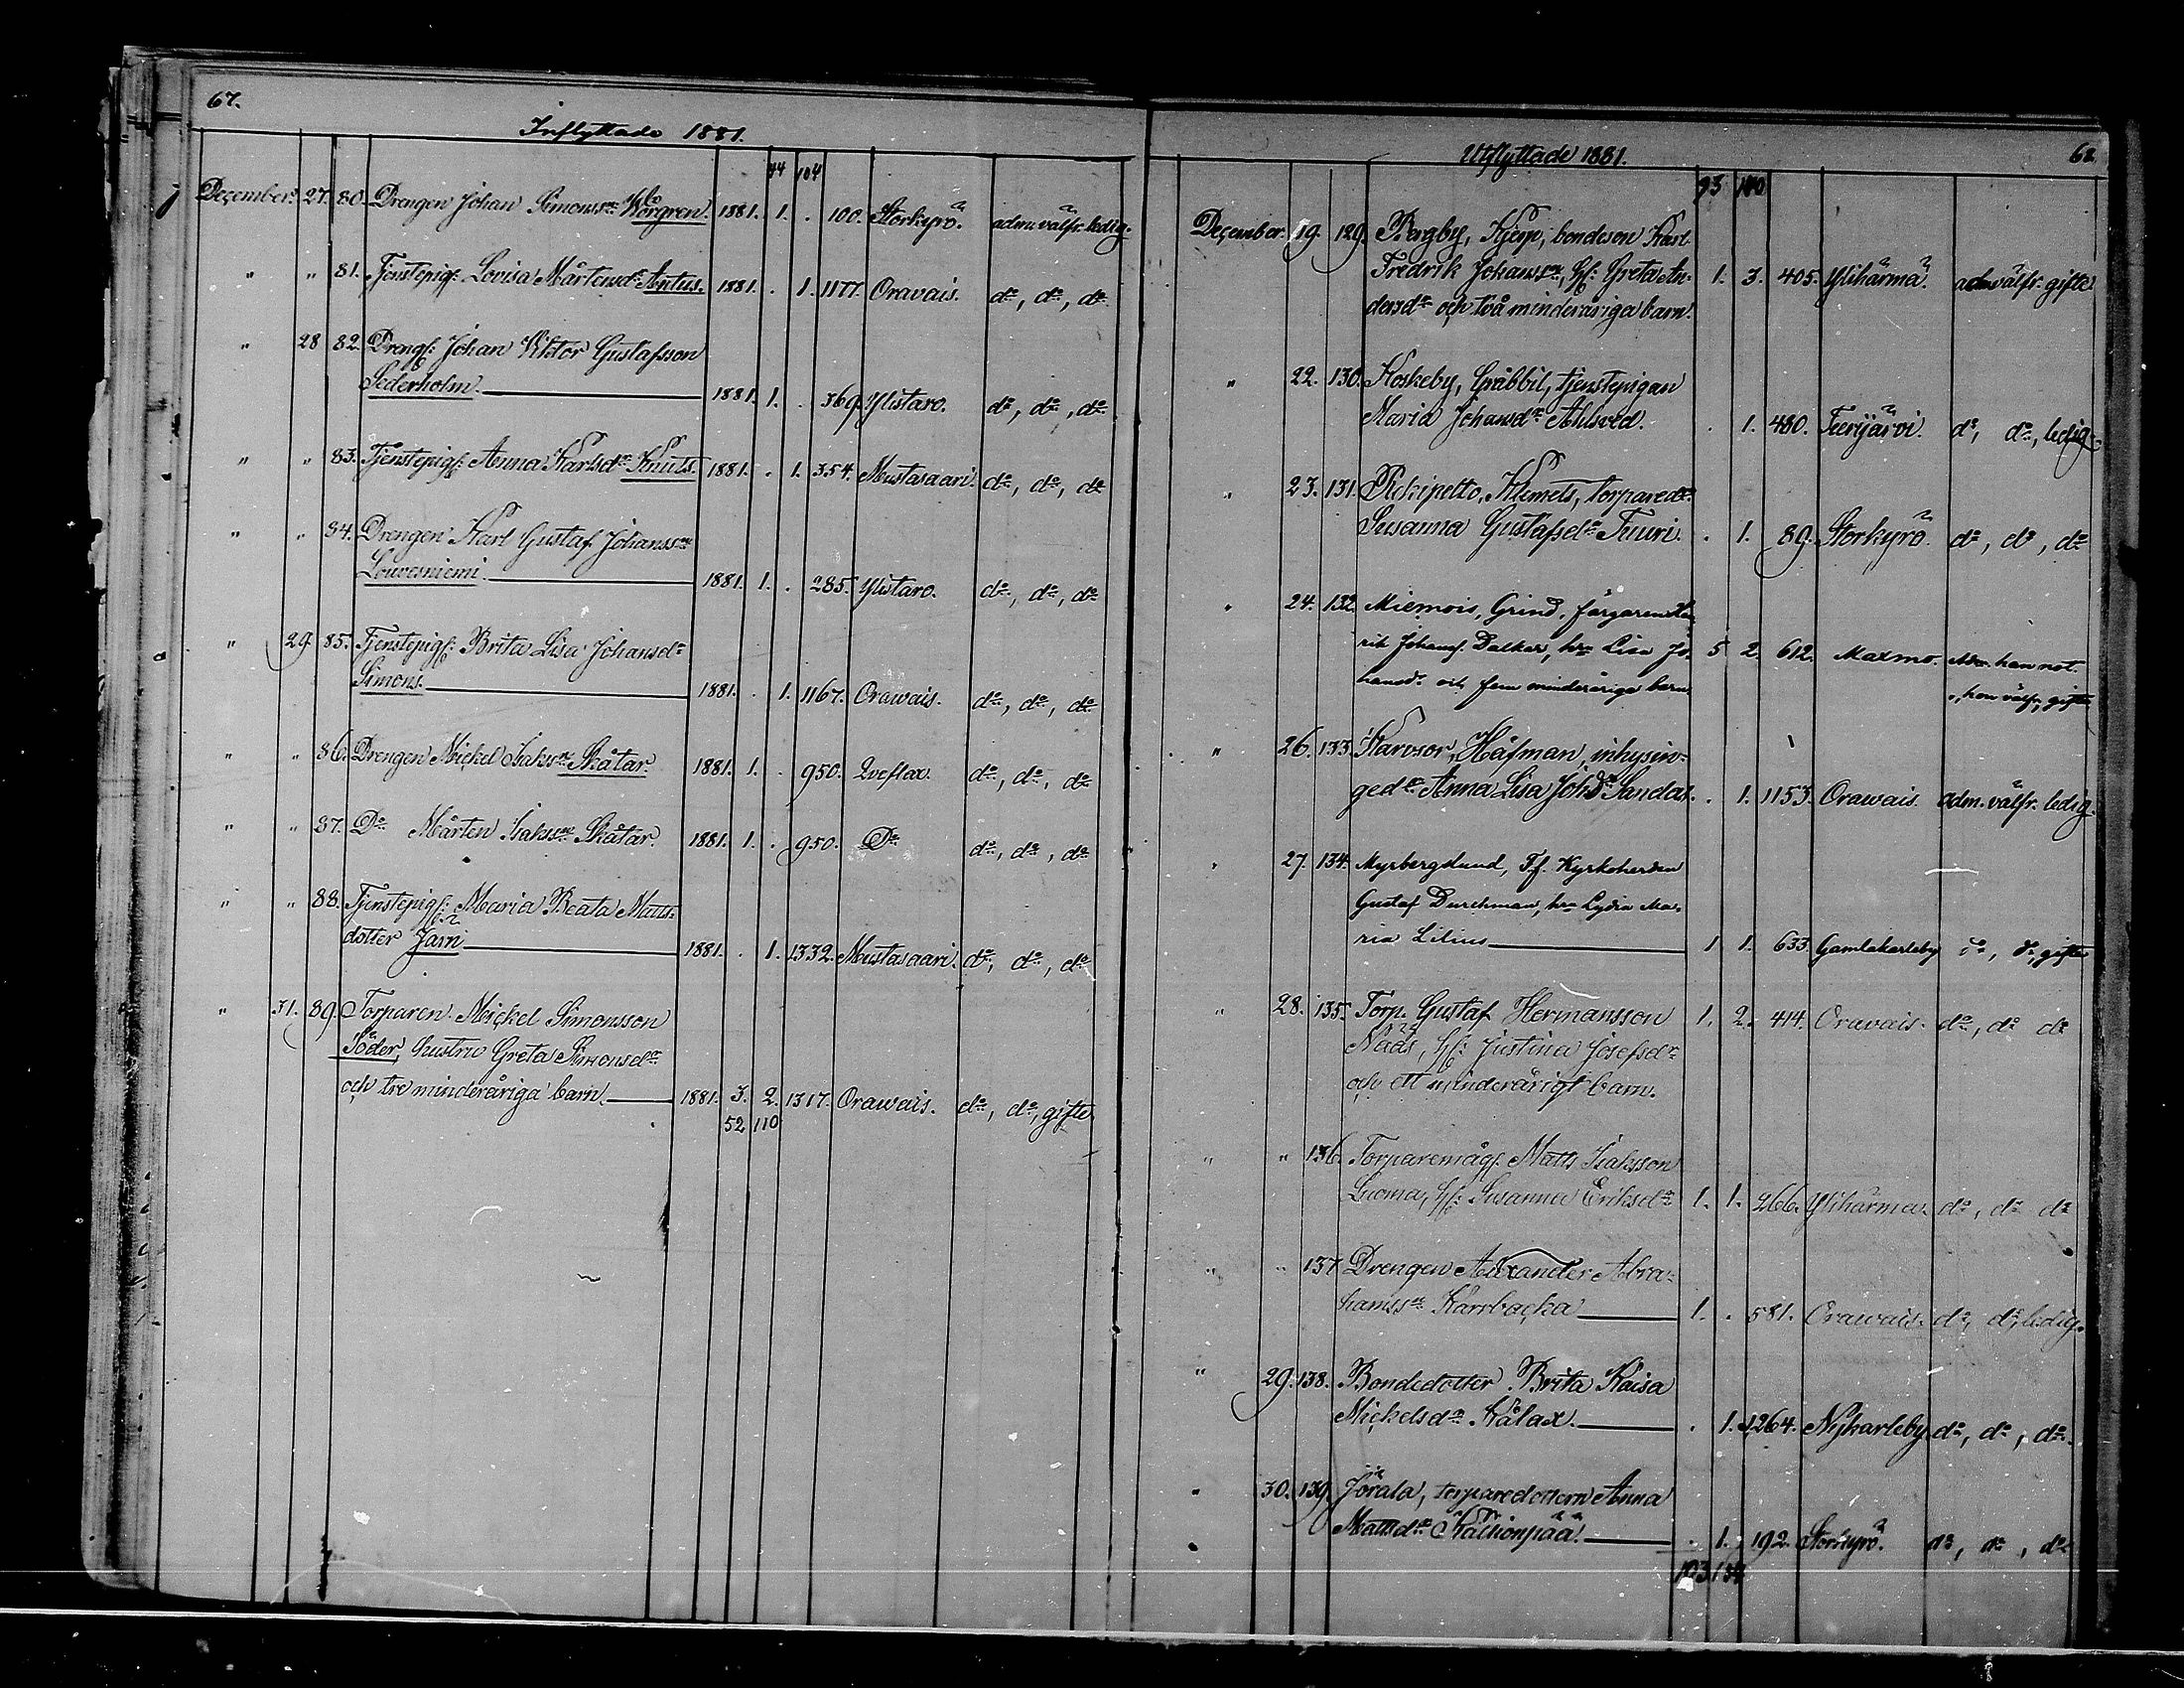 67.
Inflyttade 1881.
44 104
December. 27. 80. Drengen Johan Simonss:n Wörgren. 1881. 1. . 100. Storkyrö. adm. välfr. ledig.
" " 81. Tjenstepig: Lovisa Mårtensd:r Antus. 1881. . 1. 1177. Oravais. d:o, d:o, d:o
" 28 82. Dreng: Johan Viktor Gustafsson
Sederholm. 1881. 1. . 369. Ylistaro. d:o, d:o, d:o
" " 83. Tjenstepig: Anna Karlsd:r Knuts. 1881. . 1. 354. Mustasaari. d:o, d:o, d:o
" " 84. Drengen Karl Gustaf Johanss:n
Louvesniemi. 1881. 1. . 285. Ylistaro. d:o, d:o, d:o
" 29. 85. Tjenstepig: Brita Lisa Johansd:r
Simons. 1881. . 1. 1167. Orawais. d:o, d:o, d:o
" " 86. Drengen Mickel Isakss:n Skåtar. 1881. 1. . 950. Qveflax. d:o, d:o, d:o
" " 87. D:o Mårten Isakss:n Skåtar. 1881. 1. . 950. D:o d:o, d:o, d:o
" " 88. Tjenstepig: Maria Beata Matts-
dotter Järri 1881. . 1. 1332. Mustasaari. d:o, d:o, d:o
" 31. 89. Torparen Mickel Simonsson
Söder, hustru Greta Simonsd:r
och tre minderåriga barn. 1881. 3. 2. 1317. Orawais. d:o, d:o, gifte
52 110
68
Utflyttade 1881.
93 140
December. 19. 129. Bergby, Kjerp, bondeson Karl
Fredrik Johanss:n, H: Greta An-
dersd:r och två minderåriga barn. 1. 3. 405. Ylihärmä. adm välfr. gifte
" 22. 130. Koskeby, Gråbbil, tjenstepigan
Maria Johansd:r Ahlsved. . 1. 480. Terijärvi. d:o, d:o, ledig.
" 23. 131. Rekipelto, Klemets, torpared:r
Susanna Gustafsd:r Tuuri. . 1. 89. Storkyrö. d:o, d:o, d:o
" 24. 132 Miemois, Grind, färgaren Hen-
rik Johans. Dalkar, h:u Lisa Jo- 5 2. 612. Maxmo. Adm. han not.
hansd:r och fem minderåriga barn. ", hon välfr., gifte
" 26. 133. Karvsor, Håfman, inhysin-
ged:r Anna Lisa Joh:d:r Sandas. . 1. 1153. Orawais. adm. välfr. ledig.
" 27. 134. Myrbergslund, T.f. Kyrkoherden
Gustaf Durchman, h:u Lydia Ma-
ria Lilius 1 1. 633. Gamlakarleby d:o, d:o, gifte
" 28. 135. Torp. Gustaf Hermansson 1. 2. 414. Oravais. d:o, d:o d:o
Nääs, H: Justina Josefsd:r
och ett minderårigt barn.
" " 136. Torparemåg: Matts Isaksson
Luoma, H: Susanna Eriksd:r 1. 1. 266. Ylihärmä. d:o, d:o d:o
" " 137 Drengen Alexander Abra-
hamss:n Kärrbacka 1. . 581. Orawais. d:o, d:o, ledig.
" 29. 138. Bondedotter Brita Kaisa
Mickelsd:r Kålax. . 1. 1264. Nykarleby. d:o, d:o, d:o.
" 30. 139. Jörala, torparedottern Anna
Mattsd:r . 1. 192. Storkyrö. d:o, d:o, d:o
103 154